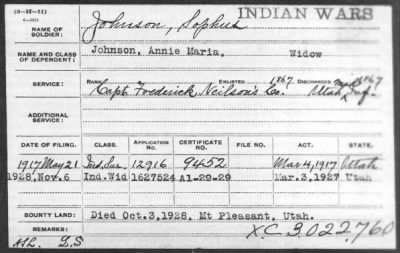 (3-H-11)
INDIAN WARS
NAME OF SOLDIER: Johnson, Sophus
NAME AND CLASS OF DEPENDENT: Johnson, Annie Maria, Widow
SERVICE: RANK ENLISTED 1867 DISCHARGED 1867
Capt. Frederick Neilson's Co. Utah Inf.
ADDITIONAL SERVICE:
DATE OF FILING. CLASS. APPLICATION NO. CERTIFICATE NO. FILE NO. ACT. STATE.
1917 May 21 Ind. Sur. 12916 9452 Mar 4, 1917 Utah
1928, Nov. 6 Ind. Wid 1627524 A1-29-29 Mar. 3, 1927 Utah
BOUNTY LAND: Died Oct. 3, 1928, Mt Pleasant, Utah.
REMARKS: XC 3,022,760